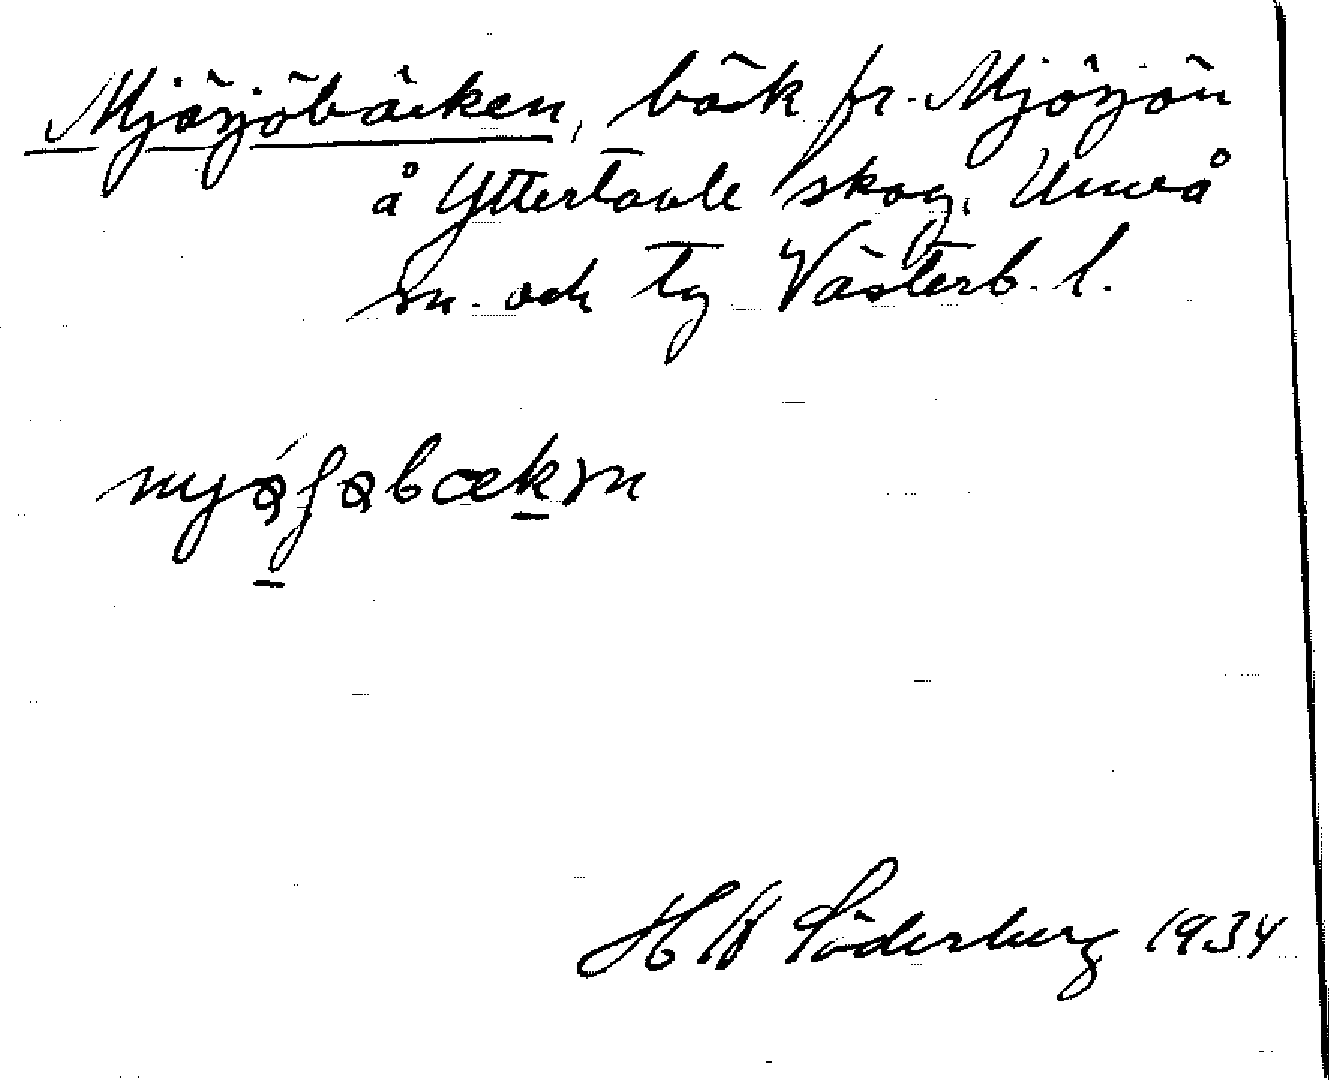 Mjösjöbäcken, bäck fr. Mjösjön
å Yttertavle skog, Umeå
sn. och tg Västerb. l.
H W Söderberg 1934